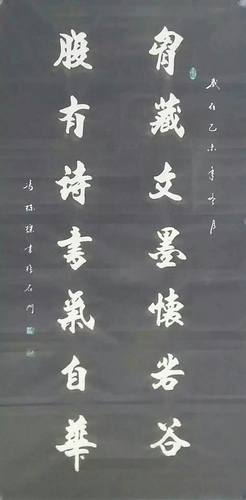 歲在乙未年冬月
胷藏文墨懷若谷
腹有詩書氣自華